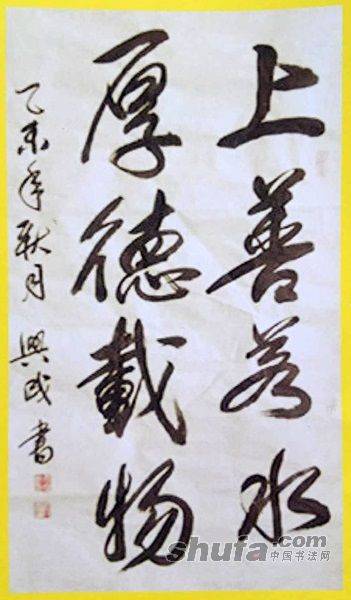 上善若水
厚德载物
乙未年秋月 興武書
shufa.com
中国书法网